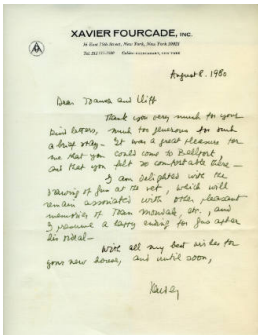 XAVIER FOURCADE, INC.
36 East 75th Street, New York, New York 10021
August 8, 1980
Dear and Cliff
Thank you very much for your
kind letters, much too generous for such
a brief stay – It was a great pleasure for
me that you could come to Bellport
and that you felt so comfortable there –
I am delighted with the
drawing of at the vet, which will
remain associated with other pleasant
memories of, etc., and
I presume a happy ending for after
his ordeal –
With all my best wishes for
your new house, and until soon,